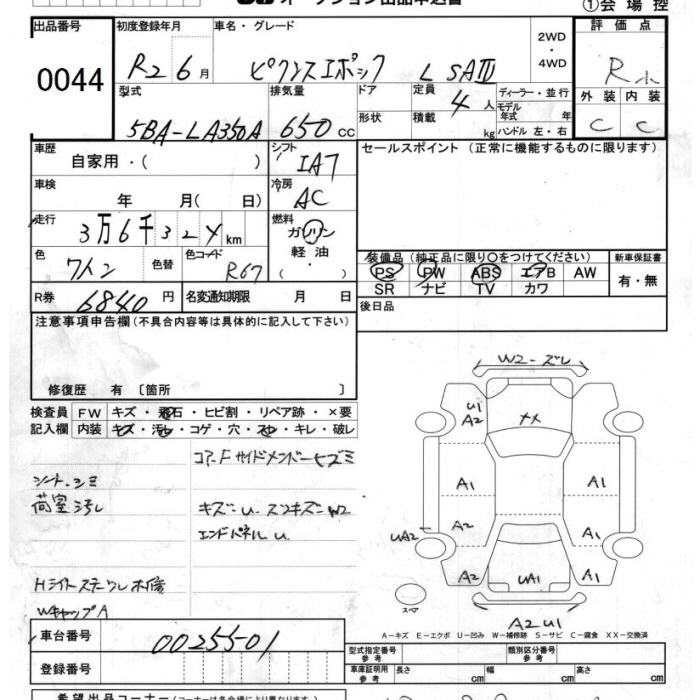 オークション出品申込書
①会場控
出品番号 初度登録年月 車名・グレード 2WD・4WD 評価点
0044 R2 6月 ピクシスエポック L SAⅢ R
型式 排気量 ドア 定員 4人 ディーラー・並行 外装 内装
5BA-LA350A 650cc 形状 積載 kg モデル年式 年 ハンドル 左・右 C C
車歴 シフト セールスポイント（正常に機能するものに限ります）
自家用・（ ） IA7
車検 冷房
年 月（ 日） AC
走行 燃料
3万6千324km ガソリン
色 ワイン 色替 色コード R67 軽油・（ ）
装備品（純正品に限り〇をつけてください） 新車保証書
PS PW ABS エアB AW 有・無
SR ナビ TV カワ
R券 6840円 名変通知期限 月 日
後日品
注意事項申告欄（不具合内容等は具体的に記入して下さい）
修復歴 有 〔箇所 〕
検査員 FW キズ・飛石・ヒビ割・リペア跡・×要
記入欄 内装 キズ・汚レ・コゲ・穴・スレ・キレ・破レ
シート、シミ
荷室汚レ
WキャップA
エンドパネルu
W2-ズレ
U1
A2
XX
A1
A1
A2
A1
UA2
A2
UA1
A1
スペア
A2U1
A－キズ E－エクボ U－凹み W－補修跡 S－サビ C－腐食 XX－交換済
車台番号 0025501
登録番号
型式指定番号 参考 類別区分番号 参考
車庫証明用 参考 長さ cm 幅 cm 高さ cm
希望出品コーナー（コーナーは各会場により異なります）